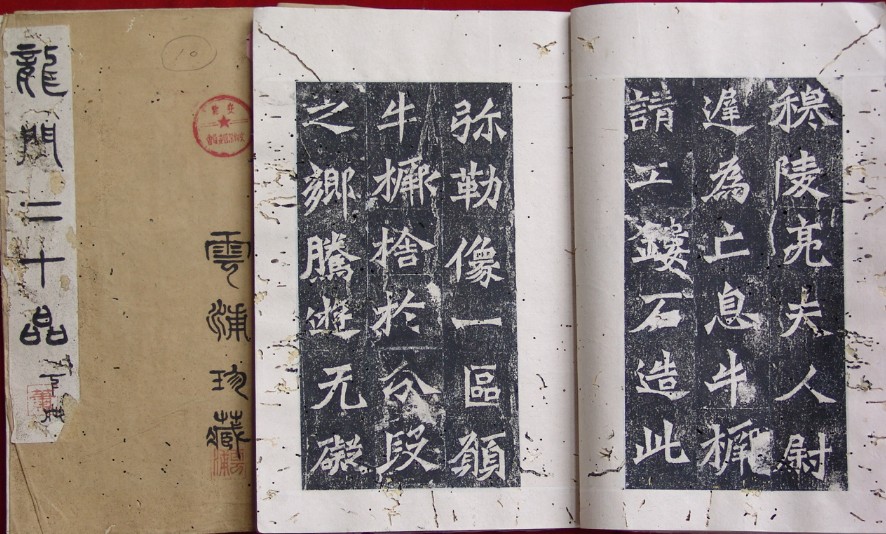 龍門二十品
雲浦珍藏
10
穆陵亮夫人尉
遲為亡息牛橛
請工鏤石造此
弥勒像一區願
牛橛捨於分段
之鄉騰遊无礙